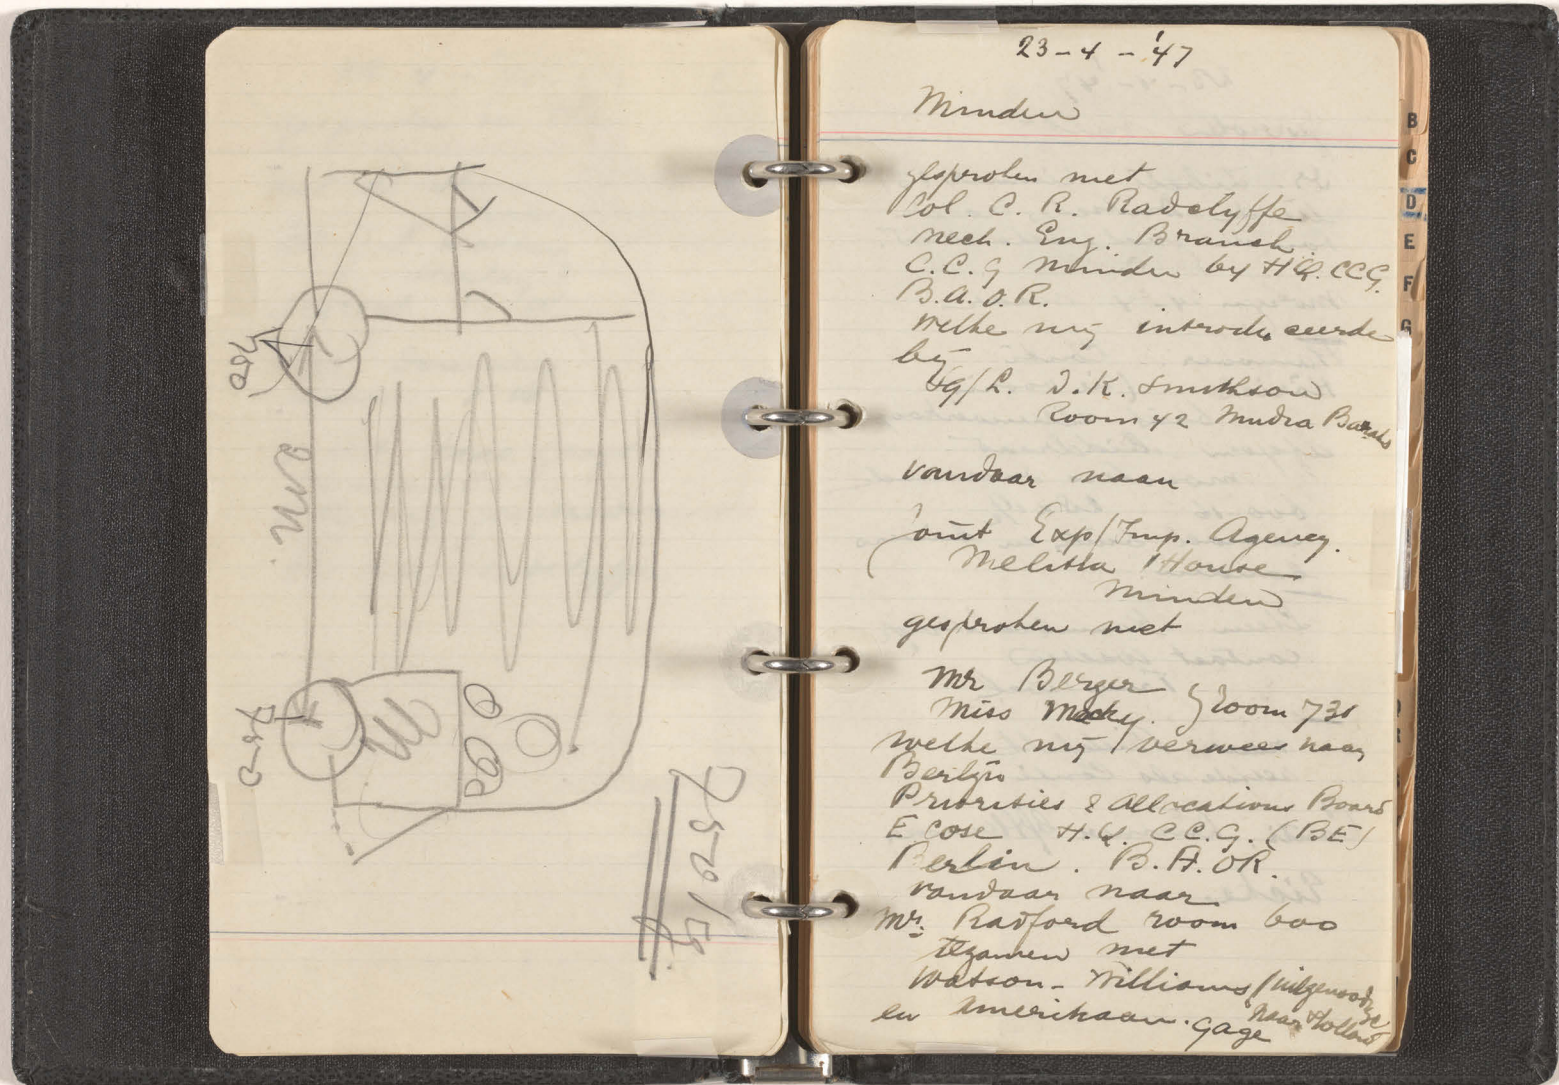 750
2 m.
750
750 kg.
23-4-'47
Minden
gesproken met
Col. C. R. Radclyffe
Mech. Eng. Branch
C.C.G Minden by H.Q. CCG.
B.A.O.R.
welke mij introduceerde
bij
D.K. Smithson
Room 42 Mudra Baraks
vandaar naar
Joint Exp/Imp. Agency.
Melitta House
Minden
gesproken met
Mr Berger
Miss Room 731
welke mij verwees naar
Berlijn
Priorities & Allocations Board
Ecose H.Q. C.C.G. (BE)
Berlin. B.A.OR.
vandaar naar
Mr. Radford room 600
tezamen met
Watson-Williams / uitgenoodigd
naar Holland
en Amerikaan. Gage
B
C
D
E
F
G